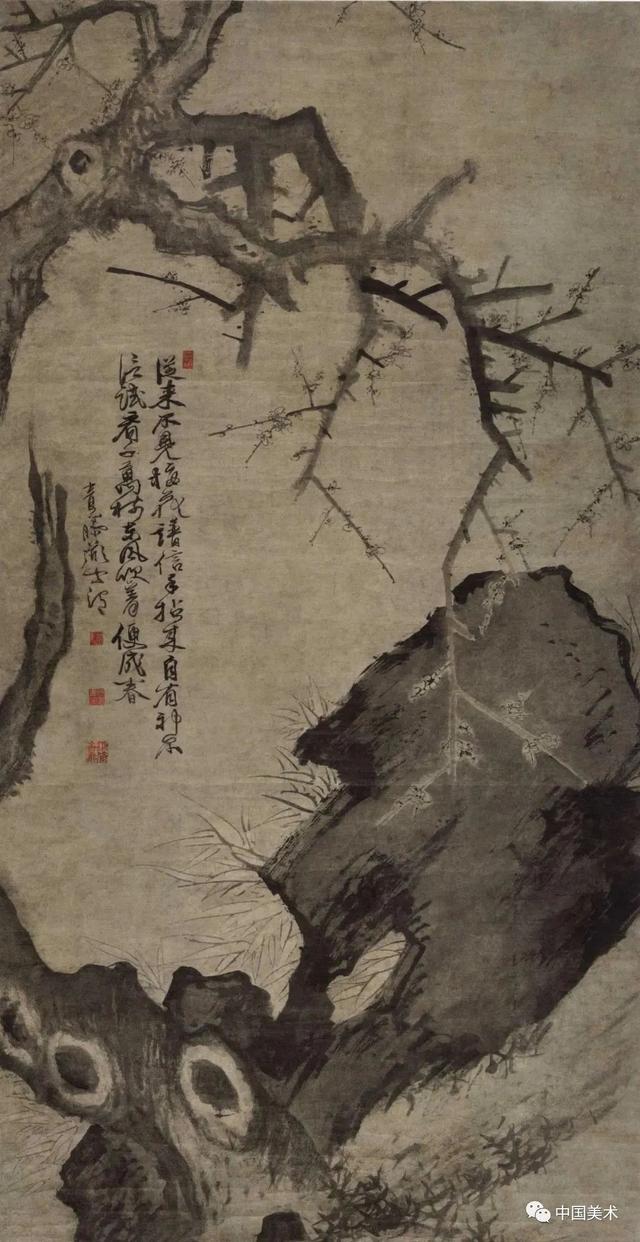 從来不見梅花譜信手拈来自有神不
信試看千萬樹東風吹着便成春
青藤渭
中国美术